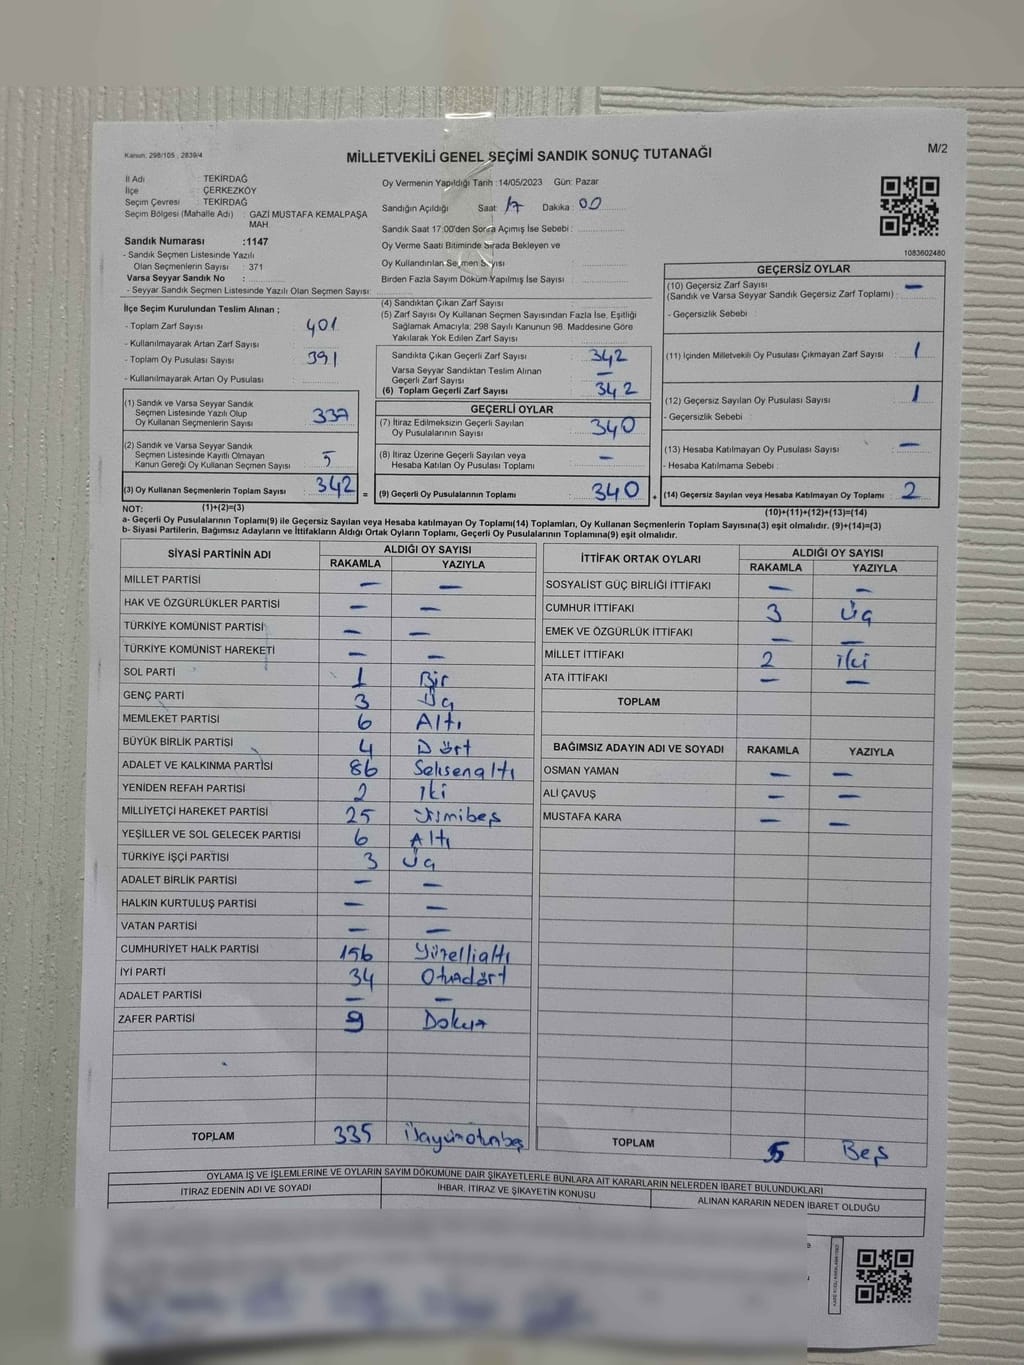 Kanun: 298/105 , 2839/4
MİLLETVEKİLİ GENEL SEÇİMİ SANDIK SONUÇ TUTANAĞI
M/2
İl Adı : TEKİRDAĞ
İlçe : ÇERKEZKÖY
Seçim Çevresi : TEKİRDAĞ
Seçim Bölgesi (Mahalle Adı) : GAZİ MUSTAFA KEMALPAŞA MAH.
Sandık Numarası :1147
- Sandık Seçmen Listesinde Yazılı
Olan Seçmenlerin Sayısı : 371
Varsa Seyyar Sandık No :
- Seyyar Sandık Seçmen Listesinde Yazılı Olan Seçmen Sayısı:
Oy Vermenin Yapıldığı Tarih :14/05/2023 Gün: Pazar
Sandığın Açıldığı Saat 17 Dakika: 00
Sandık Saat 17:00'den Sonra Açımış İse Sebebi :
Oy Verme Saati Bitiminde Sırada Bekleyen ve
Oy Kullandırılan Seçmen Sayısı
Birden Fazla Sayım Döküm Yapılmış İse Sayısı :
1083602480
İlçe Seçim Kurulundan Teslim Alınan ;
- Toplam Zarf Sayısı 401
- Kullanılmayarak Artan Zarf Sayısı :
- Toplam Oy Pusulası Sayısı 391
- Kullanılmayarak Artan Oy Pusulası :
(1) Sandık ve Varsa Seyyar Sandık
Seçmen Listesinde Yazılı Olup
Oy Kullanan Seçmenlerin Sayısı 337
(2) Sandık ve Varsa Seyyar Sandık
Seçmen Listesinde Kayıtlı Olmayan
Kanun Gereği Oy Kullanan Seçmen Sayısı 5
(3) Oy Kullanan Seçmenlerin Toplam Sayısı 342 =
(1)+(2)=(3)
(4) Sandıktan Çıkan Zarf Sayısı :
(5) Zarf Sayısı Oy Kullanan Seçmen Sayısından Fazla İse, Eşitliği
Sağlamak Amacıyla; 298 Sayılı Kanunun 98. Maddesine Göre
Yakılarak Yok Edilen Zarf Sayısı :
Sandıkta Çıkan Geçerli Zarf Sayısı : 342
Varsa Seyyar Sandıktan Teslim Alınan
Geçerli Zarf Sayısı : —
(6) Toplam Geçerli Zarf Sayısı : 342
GEÇERLİ OYLAR
(7) İtiraz Edilmeksizin Geçerli Sayılan
Oy Pusulalarının Sayısı : 340
(8) İtiraz Üzerine Geçerli Sayılan veya
Hesaba Katılan Oy Pusulası Toplamı : —
(9) Geçerli Oy Pusulalarının Toplamı : 340 +
GEÇERSİZ OYLAR
(10) Geçersiz Zarf Sayısı —
(Sandık ve Varsa Seyyar Sandık Geçersiz Zarf Toplamı) :
- Geçersizlik Sebebi :
(11) İçinden Milletvekili Oy Pusulası Çıkmayan Zarf Sayısı : 1
(12) Geçersiz Sayılan Oy Pusulası Sayısı : 1
- Geçersizlik Sebebi :
(13) Hesaba Katılmayan Oy Pusulası Sayısı : —
- Hesaba Katılmama Sebebi :
(14) Geçersiz Sayılan veya Hesaba Katılmayan Oy Toplamı : 2
(10)+(11)+(12)+(13)=(14)
NOT:
a- Geçerli Oy Pusulalarının Toplamı(9) ile Geçersiz Sayılan veya Hesaba katılmayan Oy Toplamı(14) Toplamları, Oy Kullanan Seçmenlerin Toplam Sayısına(3) eşit olmalıdır. (9)+(14)=(3)
b- Siyasi Partilerin, Bağımsız Adayların ve İttifakların Aldığı Ortak Oyların Toplamı, Geçerli Oy Pusulalarının Toplamına(9) eşit olmalıdır.
SİYASİ PARTİNİN ADI ALDIĞI OY SAYISI
RAKAMLA YAZIYLA
MİLLET PARTİSİ — —
HAK VE ÖZGÜRLÜKLER PARTİSİ — —
TÜRKİYE KOMÜNİST PARTİSİ — —
TÜRKİYE KOMÜNİST HAREKETİ — —
SOL PARTİ 1 Bir
GENÇ PARTİ 3 Üç
MEMLEKET PARTİSİ 6 Altı
BÜYÜK BİRLİK PARTİSİ 4 Dört
ADALET VE KALKINMA PARTİSİ 86 Seksenaltı
YENİDEN REFAH PARTİSİ 2 İki
MİLLİYETÇİ HAREKET PARTİSİ 25 Yirmibeş
YEŞİLLER VE SOL GELECEK PARTİSİ 6 Altı
TÜRKİYE İŞÇİ PARTİSİ 3 Üç
ADALET BİRLİK PARTİSİ — —
HALKIN KURTULUŞ PARTİSİ — —
VATAN PARTİSİ — —
CUMHURİYET HALK PARTİSİ 156 Yüzelliatlı
İYİ PARTİ 34 Otuzdört
ADALET PARTİSİ — —
ZAFER PARTİSİ 9 Dokuz
TOPLAM 335 Üçyüzotuzbeş
İTTİFAK ORTAK OYLARI ALDIĞI OY SAYISI
RAKAMLA YAZIYLA
SOSYALİST GÜÇ BİRLİĞİ İTTİFAKI — —
CUMHUR İTTİFAKI 3 Üç
EMEK VE ÖZGÜRLÜK İTTİFAKI — —
MİLLET İTTİFAKI 2 İki
ATA İTTİFAKI — —
TOPLAM
BAĞIMSIZ ADAYIN ADI VE SOYADI RAKAMLA YAZIYLA
OSMAN YAMAN — —
ALİ ÇAVUŞ — —
MUSTAFA KARA — —
TOPLAM 5 Beş
OYLAMA İŞ VE İŞLEMLERİNE VE OYLARIN SAYIM DÖKÜMÜNE DAİR ŞİKAYETLERLE BUNLARA AİT KARARLARIN NELERDEN İBARET BULUNDUKLARI
İTİRAZ EDENİN ADI VE SOYADI İHBAR, İTİRAZ VE ŞİKAYETİN KONUSU ALINAN KARARIN NEDEN İBARET OLDUĞU